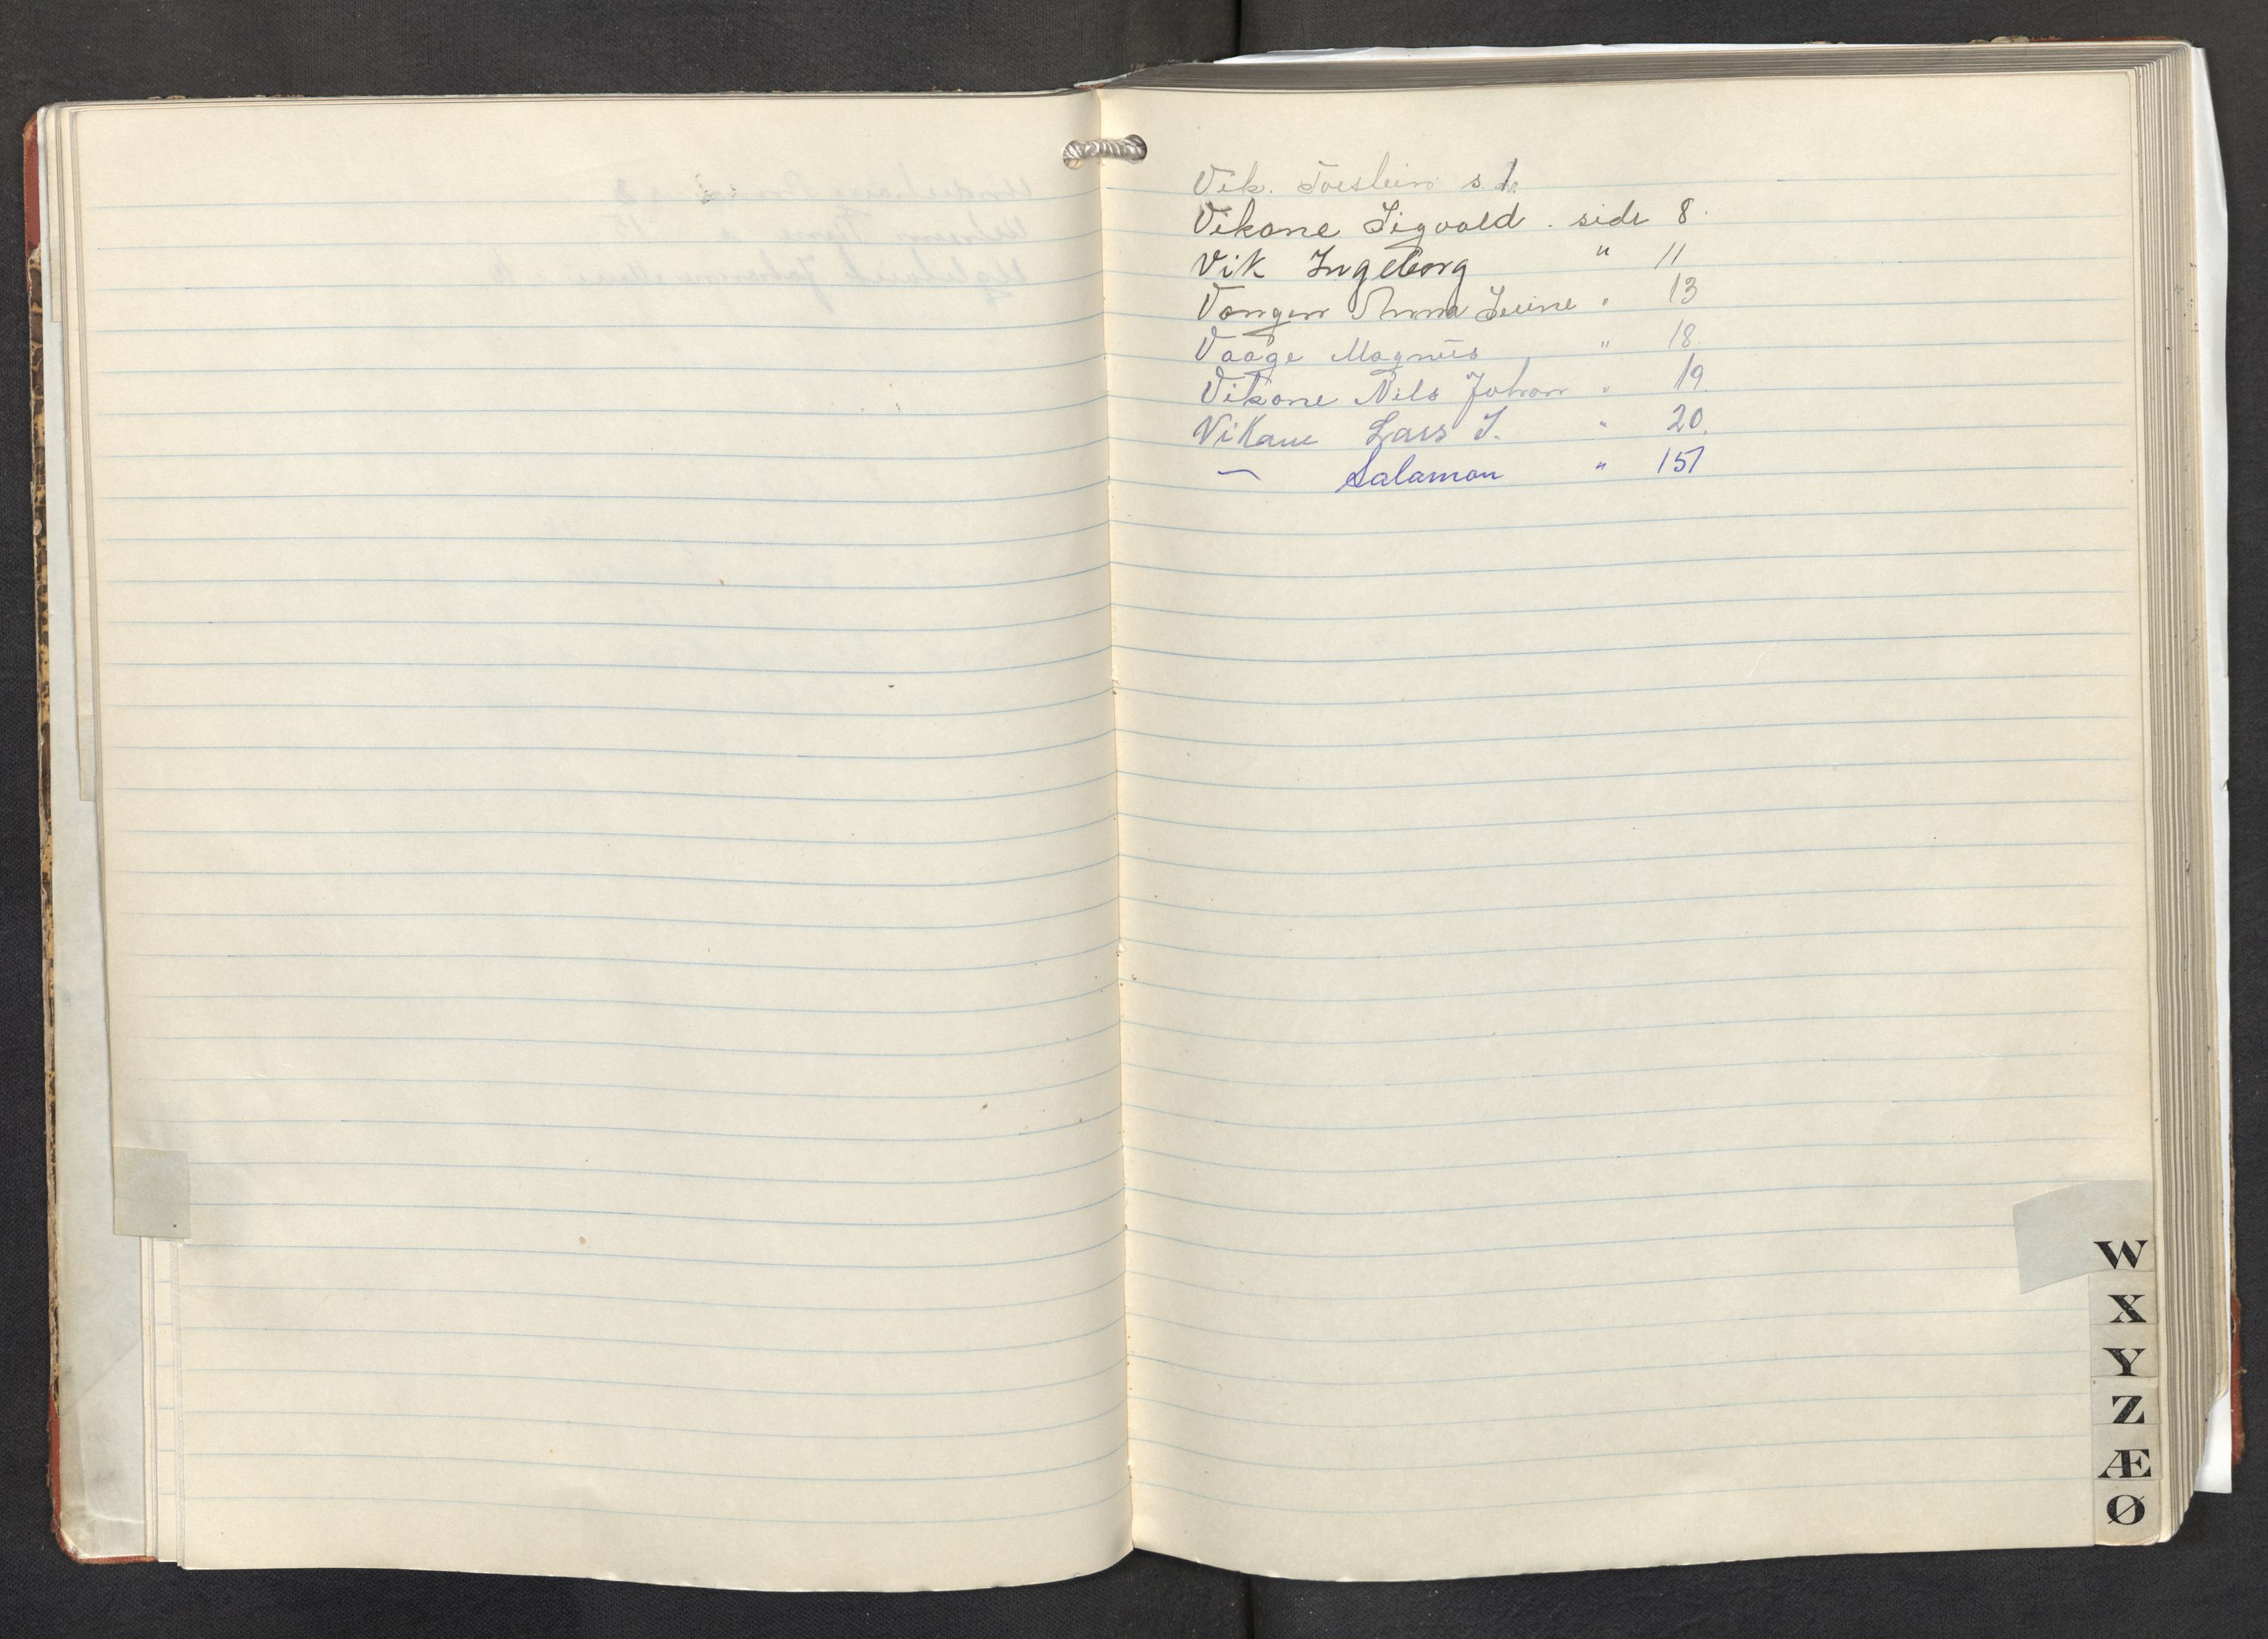 Vik. Torstein s. 1.
Vikane Sigvald . side 8.
Vik Ingeborg " 11
Vangen Anna Serine " 13
Vaage Magnus " 18.
Vikane Nils Johan " 19.
Vikane Lars S. " 20.
— Salamon " 151
W
X
Y
Z
Æ
Ø